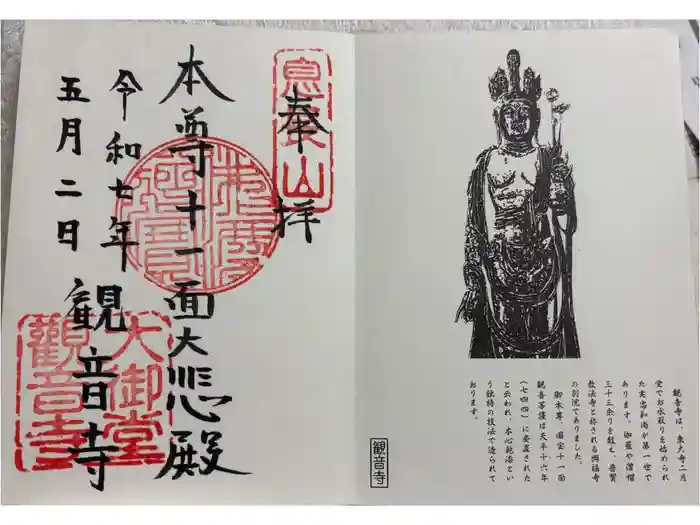 奉拝
息長山
本尊十一面大悲殿
令和七年
五月二日
観音寺
大御堂
観音寺
観音寺は、東大寺二月
堂でお水取りを始められ
た実忠和尚が第一世で
あります。伽藍や僧坊
三十三余りを数え、普賢
教法寺と称される興福寺
の別院でありました。
御本尊、国宝十一面
観音菩薩は天平十六年
(七四四)に安置された
と云われ、木心乾漆とい
う独特の技法で造られて
おります。
観音寺